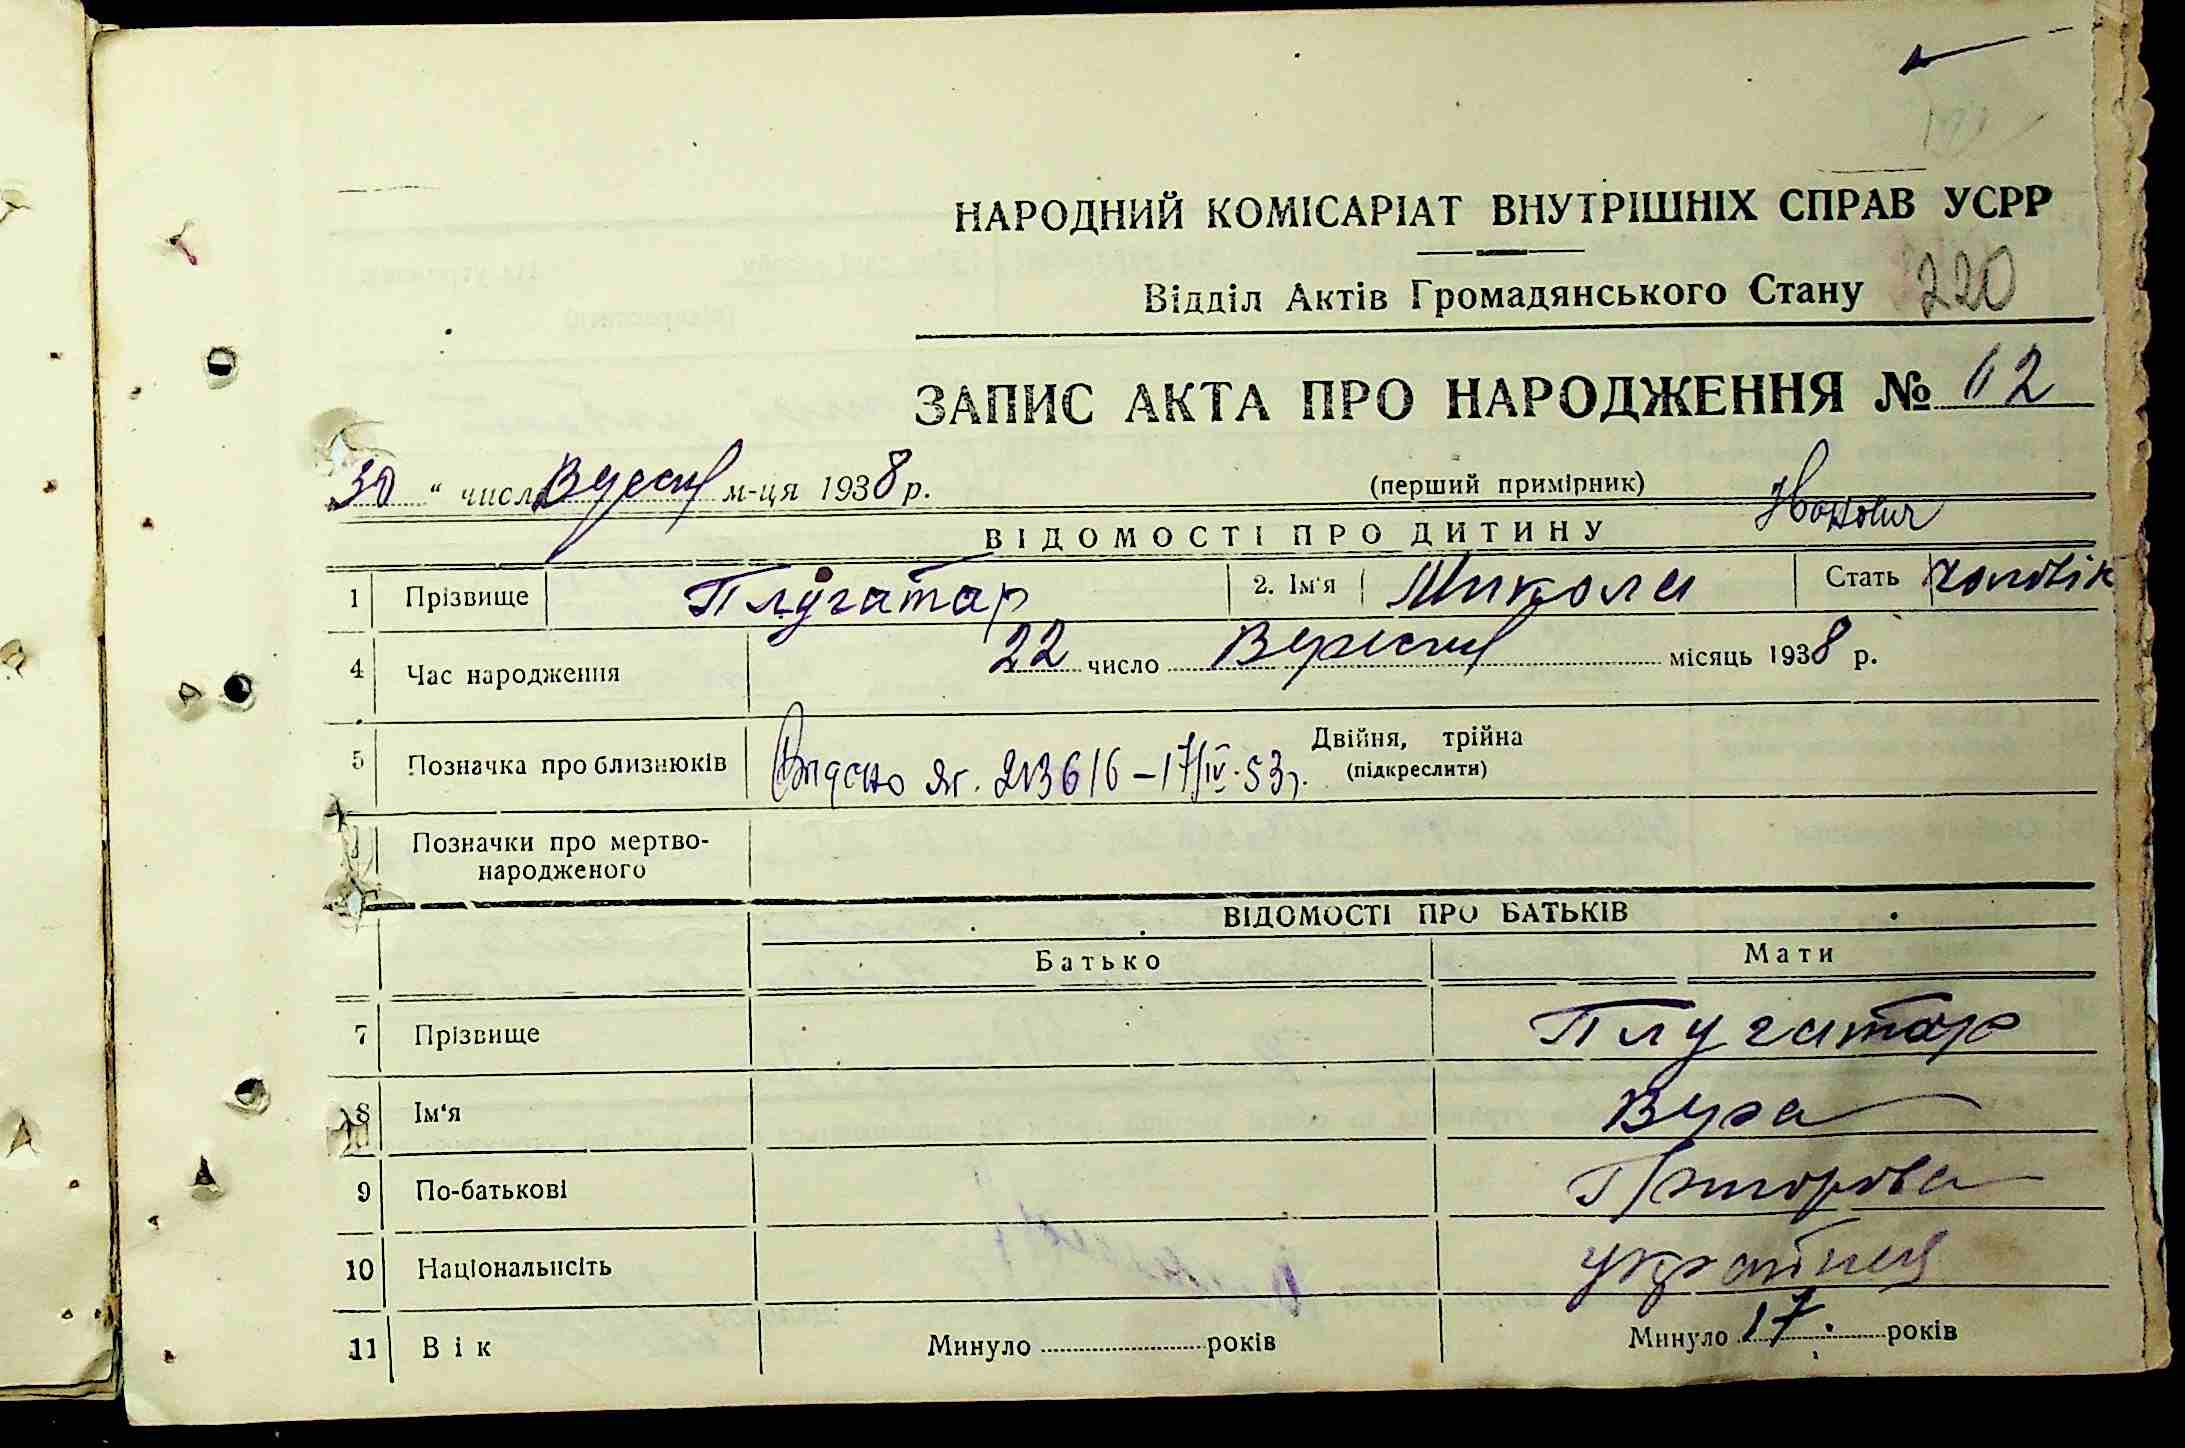 НАРОДНИЙ КОМІСАРІАТ ВНУТРІШНІХ СПРАВ УСРР
Відділ Актів Громадянського Стану 220
ЗАПИС АКТА ПРО НАРОДЖЕННЯ № 62
30 " число Вересня м-ця 1938 р. (перший примірник)
ВІДОМОСТІ ПРО ДИТИНУ Іванович
1 Прізвище Плугатар 2. Ім'я Микола Стать чоловік
4 Час народження 22 число Вересня місяць 1938 р.
5 Позначка про близнюків Двійня, трійна
(підкреслити)
Видано яг. 213616 – 17/IV-53г.
Позначки про мертво-
народженого
ВІДОМОСТІ ПРО БАТЬКІВ
Батько Мати
7 Прізвище Плугатар
8 Ім'я Вера
9 По-батькові
10 Національність українка
11 Вік Минуло років Минуло 17. років